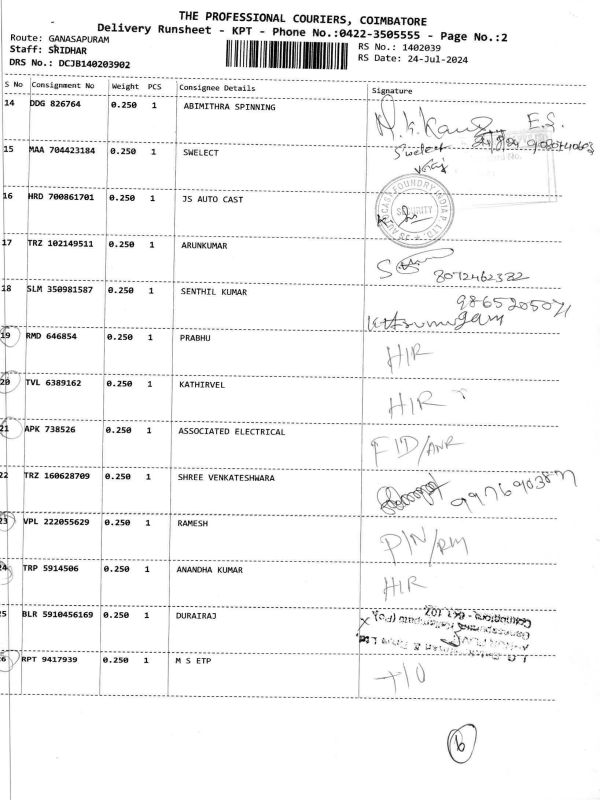 THE PROFESSIONAL COURIERS, COIMBATORE
Delivery Runsheet - KPT - Phone No.:0422-3505555 - Page No.:2
Route: GANASAPURAM
Staff: SRIDHAR
RS No.: 1402039
DRS No.: DCJB140203902
RS Date: 24-Jul-2024
S No Consignment No Weight PCS Consignee Details Signature
14 DDG 826764 0.250 1 ABIMITHRA SPINNING
E.S.
15 MAA 704423184 0.250 1 SWELECT Swelect
16 HRD 700861701 0.250 1 JS AUTO CAST
SECURITY
17 TRZ 102149511 0.250 1 ARUNKUMAR
8072462322
18 SLM 350981587 0.250 1 SENTHIL KUMAR
9865205071
19 RMD 646854 0.250 1 PRABHU HIR
20 TVL 6389162 0.250 1 KATHIRVEL HIR
21 APK 738526 0.250 1 ASSOCIATED ELECTRICAL
22 TRZ 160628709 0.250 1 SHREE VENKATESHWARA
23 VPL 222055629 0.250 1 RAMESH PIN/RM
24 TRP 5914506 0.250 1 ANANDHA KUMAR HIR
25 BLR 5910456169 0.250 1 DURAIRAJ
26 RPT 9417939 0.250 1 M S ETP